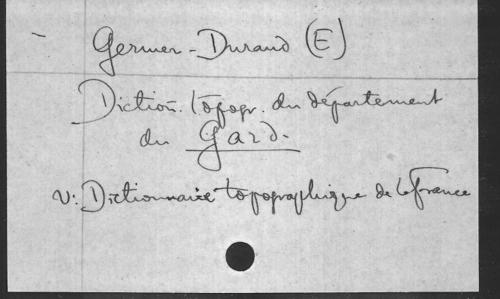 Germer-Durand (E)
Diction. topogr. du département
du Gard.
V: Dictionnaire topographique de la France